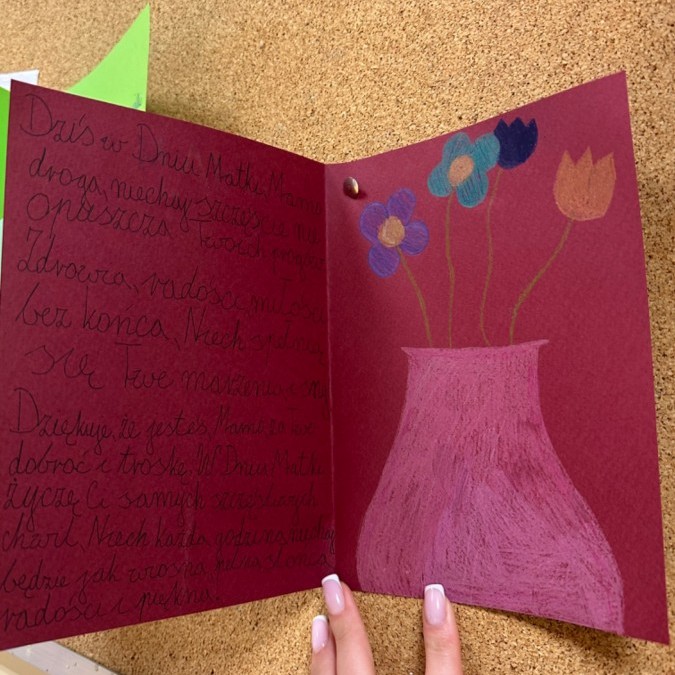 Dziś w Dniu Matki, Mamo
droga, niechaj szczęście nie
opuszcza Twoich
Zdrowia, radości, miłości
bez końca, Niech
się Twe marzenia
Dziękuję, że jesteś, Mamo za
dobroć i troskę. W Dniu Matki
życzę Ci samych szczęśliwych
chwil, Niech każda godzina niechaj
będzie jak wiosna pełna słońca
radości i piękna.